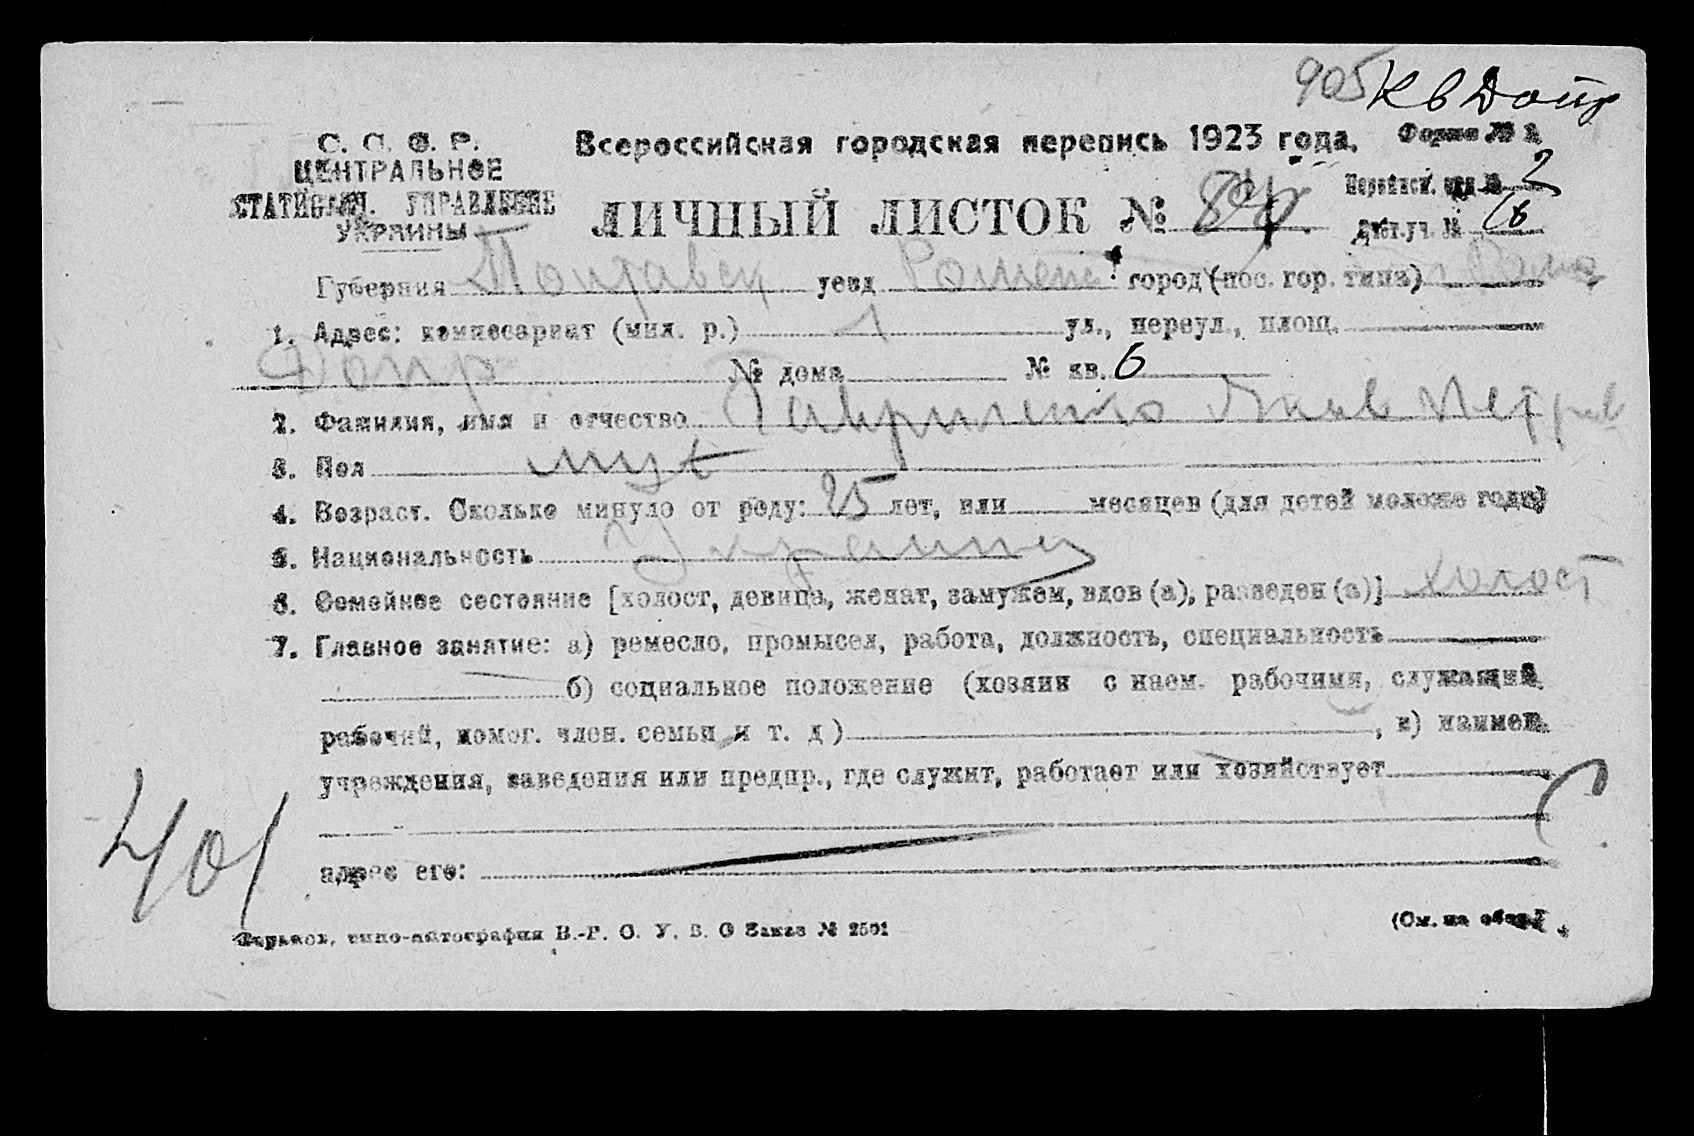 905 К В Допр
С. С. С. Р.
ЦЕНТРАЛЬНОЕ
СТАТИСТИЧ. УПРАВЛЕНИЕ
УКРАИНЫ
Всероссийская городская перепись 1923 года.
Форма № 2
ЛИЧНЫЙ ЛИСТОК №
Переписн. отд. № 2
Счет. уч. № 16
Губерния Полтавск уезд Роменс город (пос. гор. типа) Ромны
1. Адрес: комиссариат (мил. р.) 1 ул., переул., площ.
Допр № дома № кв. 6
2. Фамилия, имя и отчество Гавриленко Яков Петров
3. Пол муж
4. Возраст. Сколько минуло от роду: 25 лет, или месяцев (для детей моложе года)
5. Национальность Украинец
6. Семейное состояние [холост, девица, женат, замужем, вдов (а), разведен (а)] холост
7. Главное занятие: а) ремесло, промысел, работа, должность, специальность
б) социальное положение (хозяин с наем. рабочими, служащий,
рабочий, помог. член. семьи и т. д) , в) наимен.
учреждения, заведения или предпр., где служит, работает или хозяйствует
адрес его:
401
Харьков, типо-автография В.-Р. О. У. В. О Заказ № 2501
(См. на обор.)